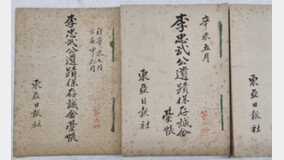 東亞日報社
辛未五月
李忠武公遺蹟保存誠金
臺帳
東亞日報社
自辛未五月
至壬申六月
李忠武公遺蹟保存誠金臺帳
東亞日報社